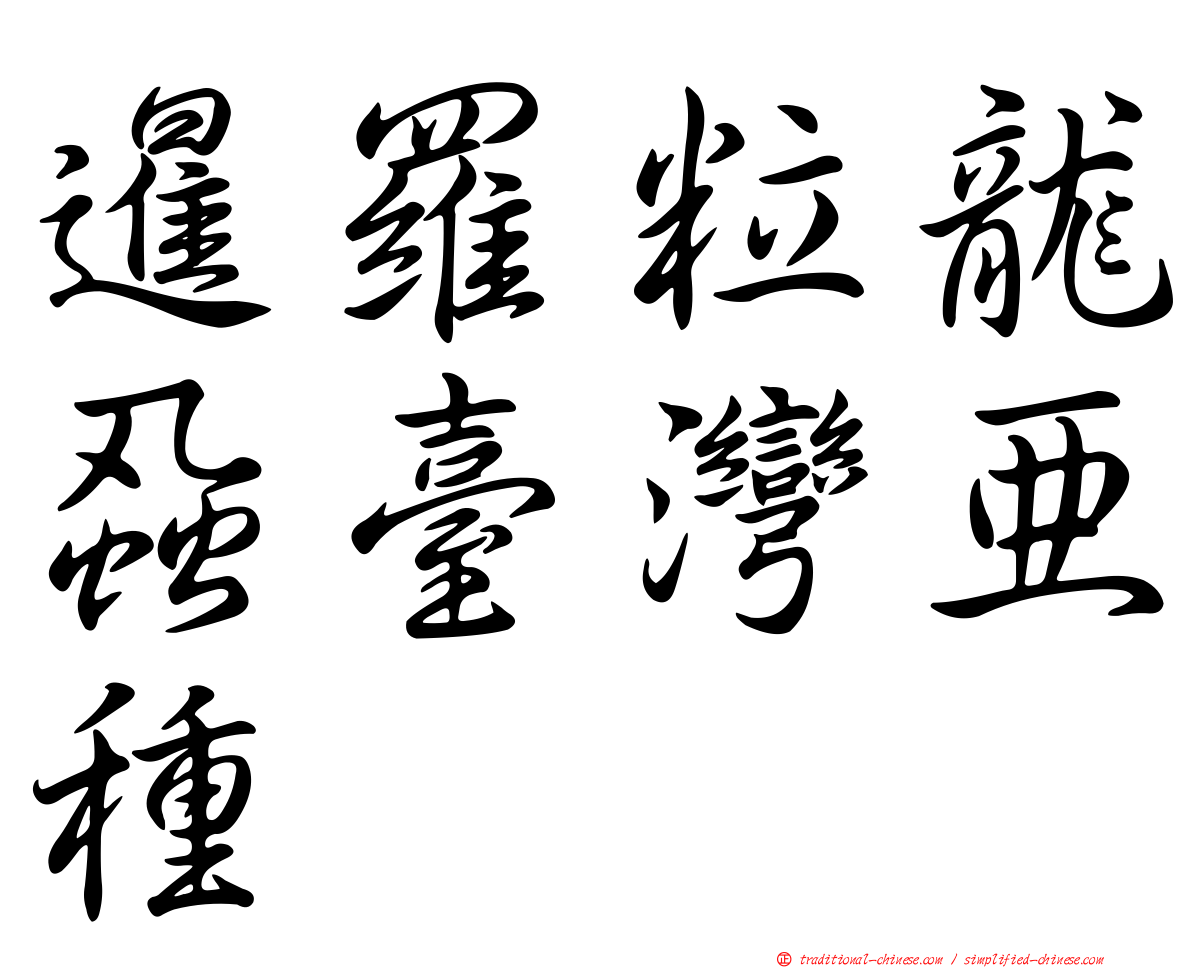 暹羅粒龍
蝨臺灣亜
種
正 traditional-chinese.com / simplified-chinese.com